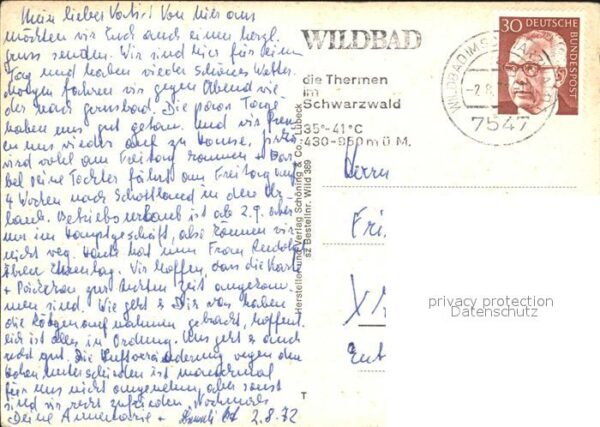 Mein lieber Vati! Von hier aus
möchten wir Euch auch einen herzl.
Gruss senden. Wir sind hier für einen
Tag und haben wieder schönes Wetter.
Morgen fahren wir gegen Abend wie-
der nach Gernsbad. Die paar Tage
haben uns gut getan und wir freu-
en uns wieder auf zu Hause,
wird wohl am Freitag kommen + Bär-
bel seine Tochter fährt am Freitag auf
4 Wochen nach Schottland in den Ur-
laub. Betriebsurlaub ist ab 2.9. aber
nur im Hauptgeschäft, also können wir
nicht weg. Heute hat nun Frau Rendolf
ihren Ehrentag. Wir hoffen, dass die Karte
+ Päckchen zur rechten Zeit angekom-
men sind. Wie geht's Dir Wir haben
die Röntgenaufnahmen gebracht, hoffent-
lich ist alles in Ordnung. Uns geht's auch
recht gut. Die Luftveränderung wegen den
hohen Unterschieden ist manchmal
für uns nicht angenehm, aber sonst
sind wir recht zufrieden. Nochmals
Deine Annemarie + 2.8.72
WILDBAD
die Thermen
im
Schwarzwald
35°-41°C
430-950 m ü M.
WILDBAD IM SCHWARZWALD
-2.8.
7547
30 DEUTSCHE
BUNDESPOST
Herstellerung Verlag Schöning & Co., Lübeck
sz Bestellnr. Wild 389
Herrn
privacy protection
Datenschutz
T